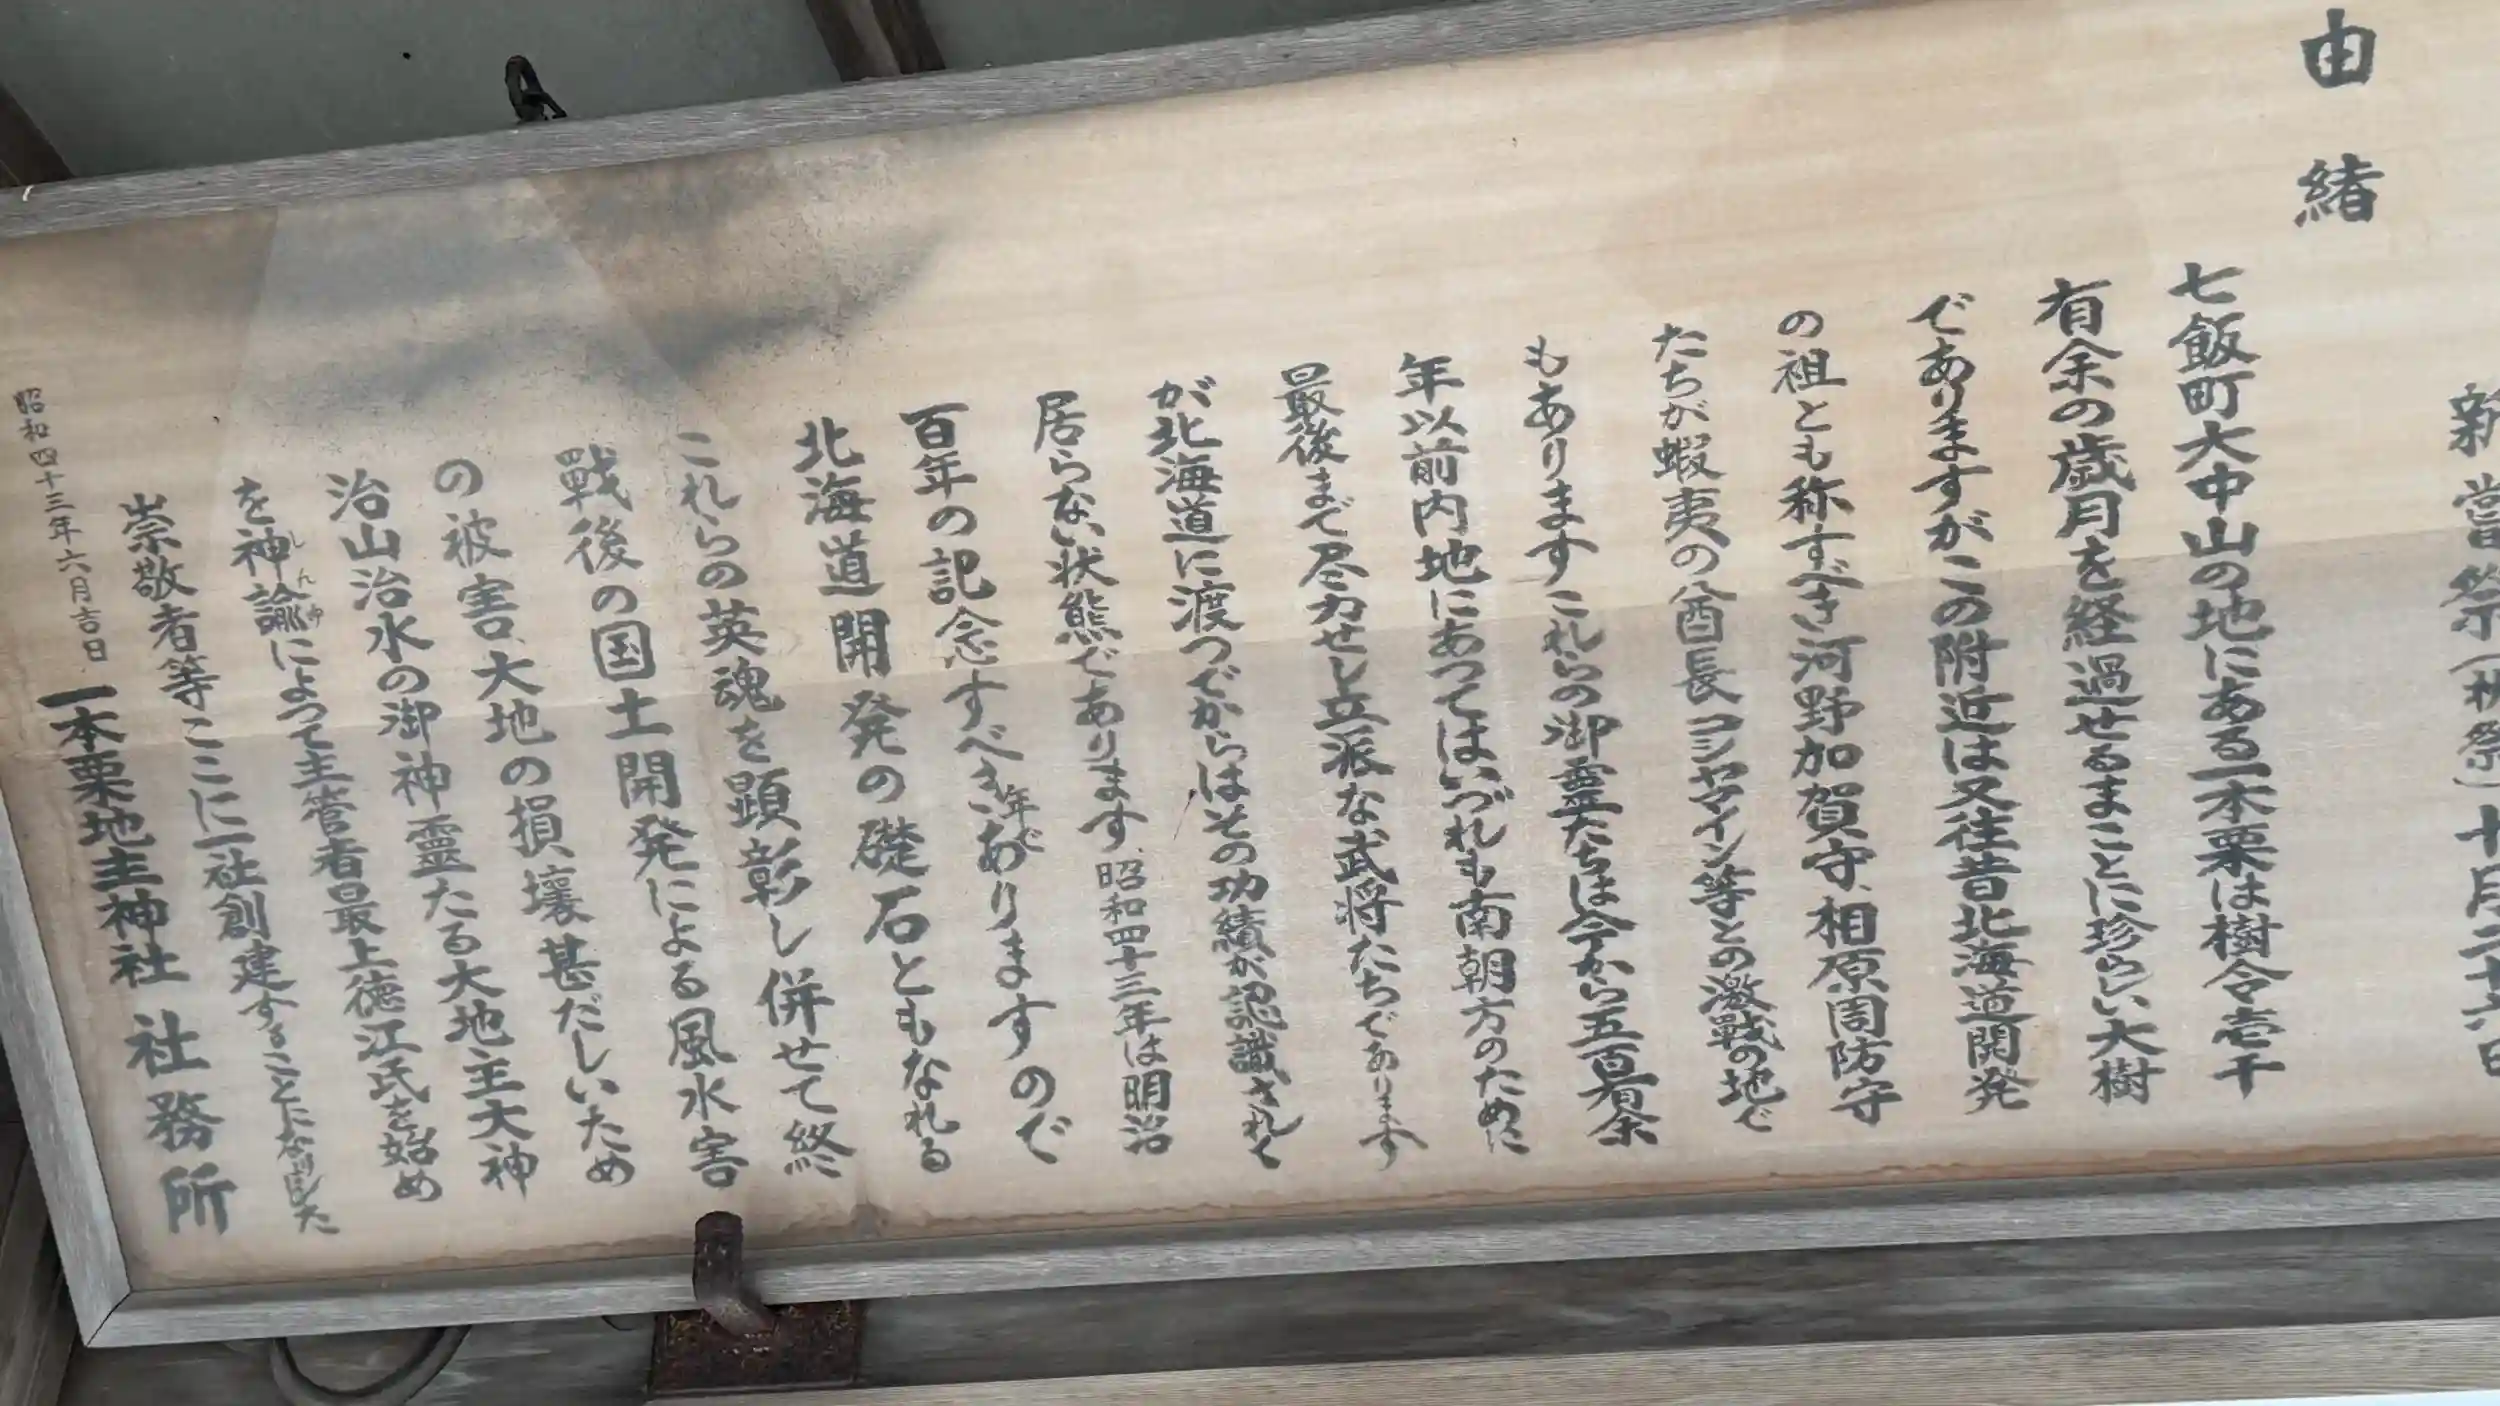 新嘗祭(秋祭)十月二十六日
由緒
七飯町大中山の地にある一本栗は樹令壱千
有余の歳月を経過せるまことに珍らしい大樹
でありますがこの附近は又往昔北海道開発
の祖とも称すべき河野加賀守、相原周防守
たちが蝦夷の酋長コシヤマイン等との激戦の地で
もありますこれらの御霊たちは今から五百有余
年以前内地にあつてはいづれも南朝方のために
最後まで尽力せし立派な武将たちであります
が北海道に渡つてからはその功績が認識されて
居らない状熊であります、昭和四十三年は明治
百年の記念すべき年でありますので
北海道開発の礎石ともなれる
これらの英魂を顕彰し併せて終
戦後の国土開発による風水害
の被害、大地の損壊甚だしいため
治山治水の御神霊たる大地主大神
を神諭によつて主管者最上徳江氏を始め
しんゆ
崇敬者等ここに一社創建することになりました
昭和四十三年六月吉日
一本栗地主神社 社務所